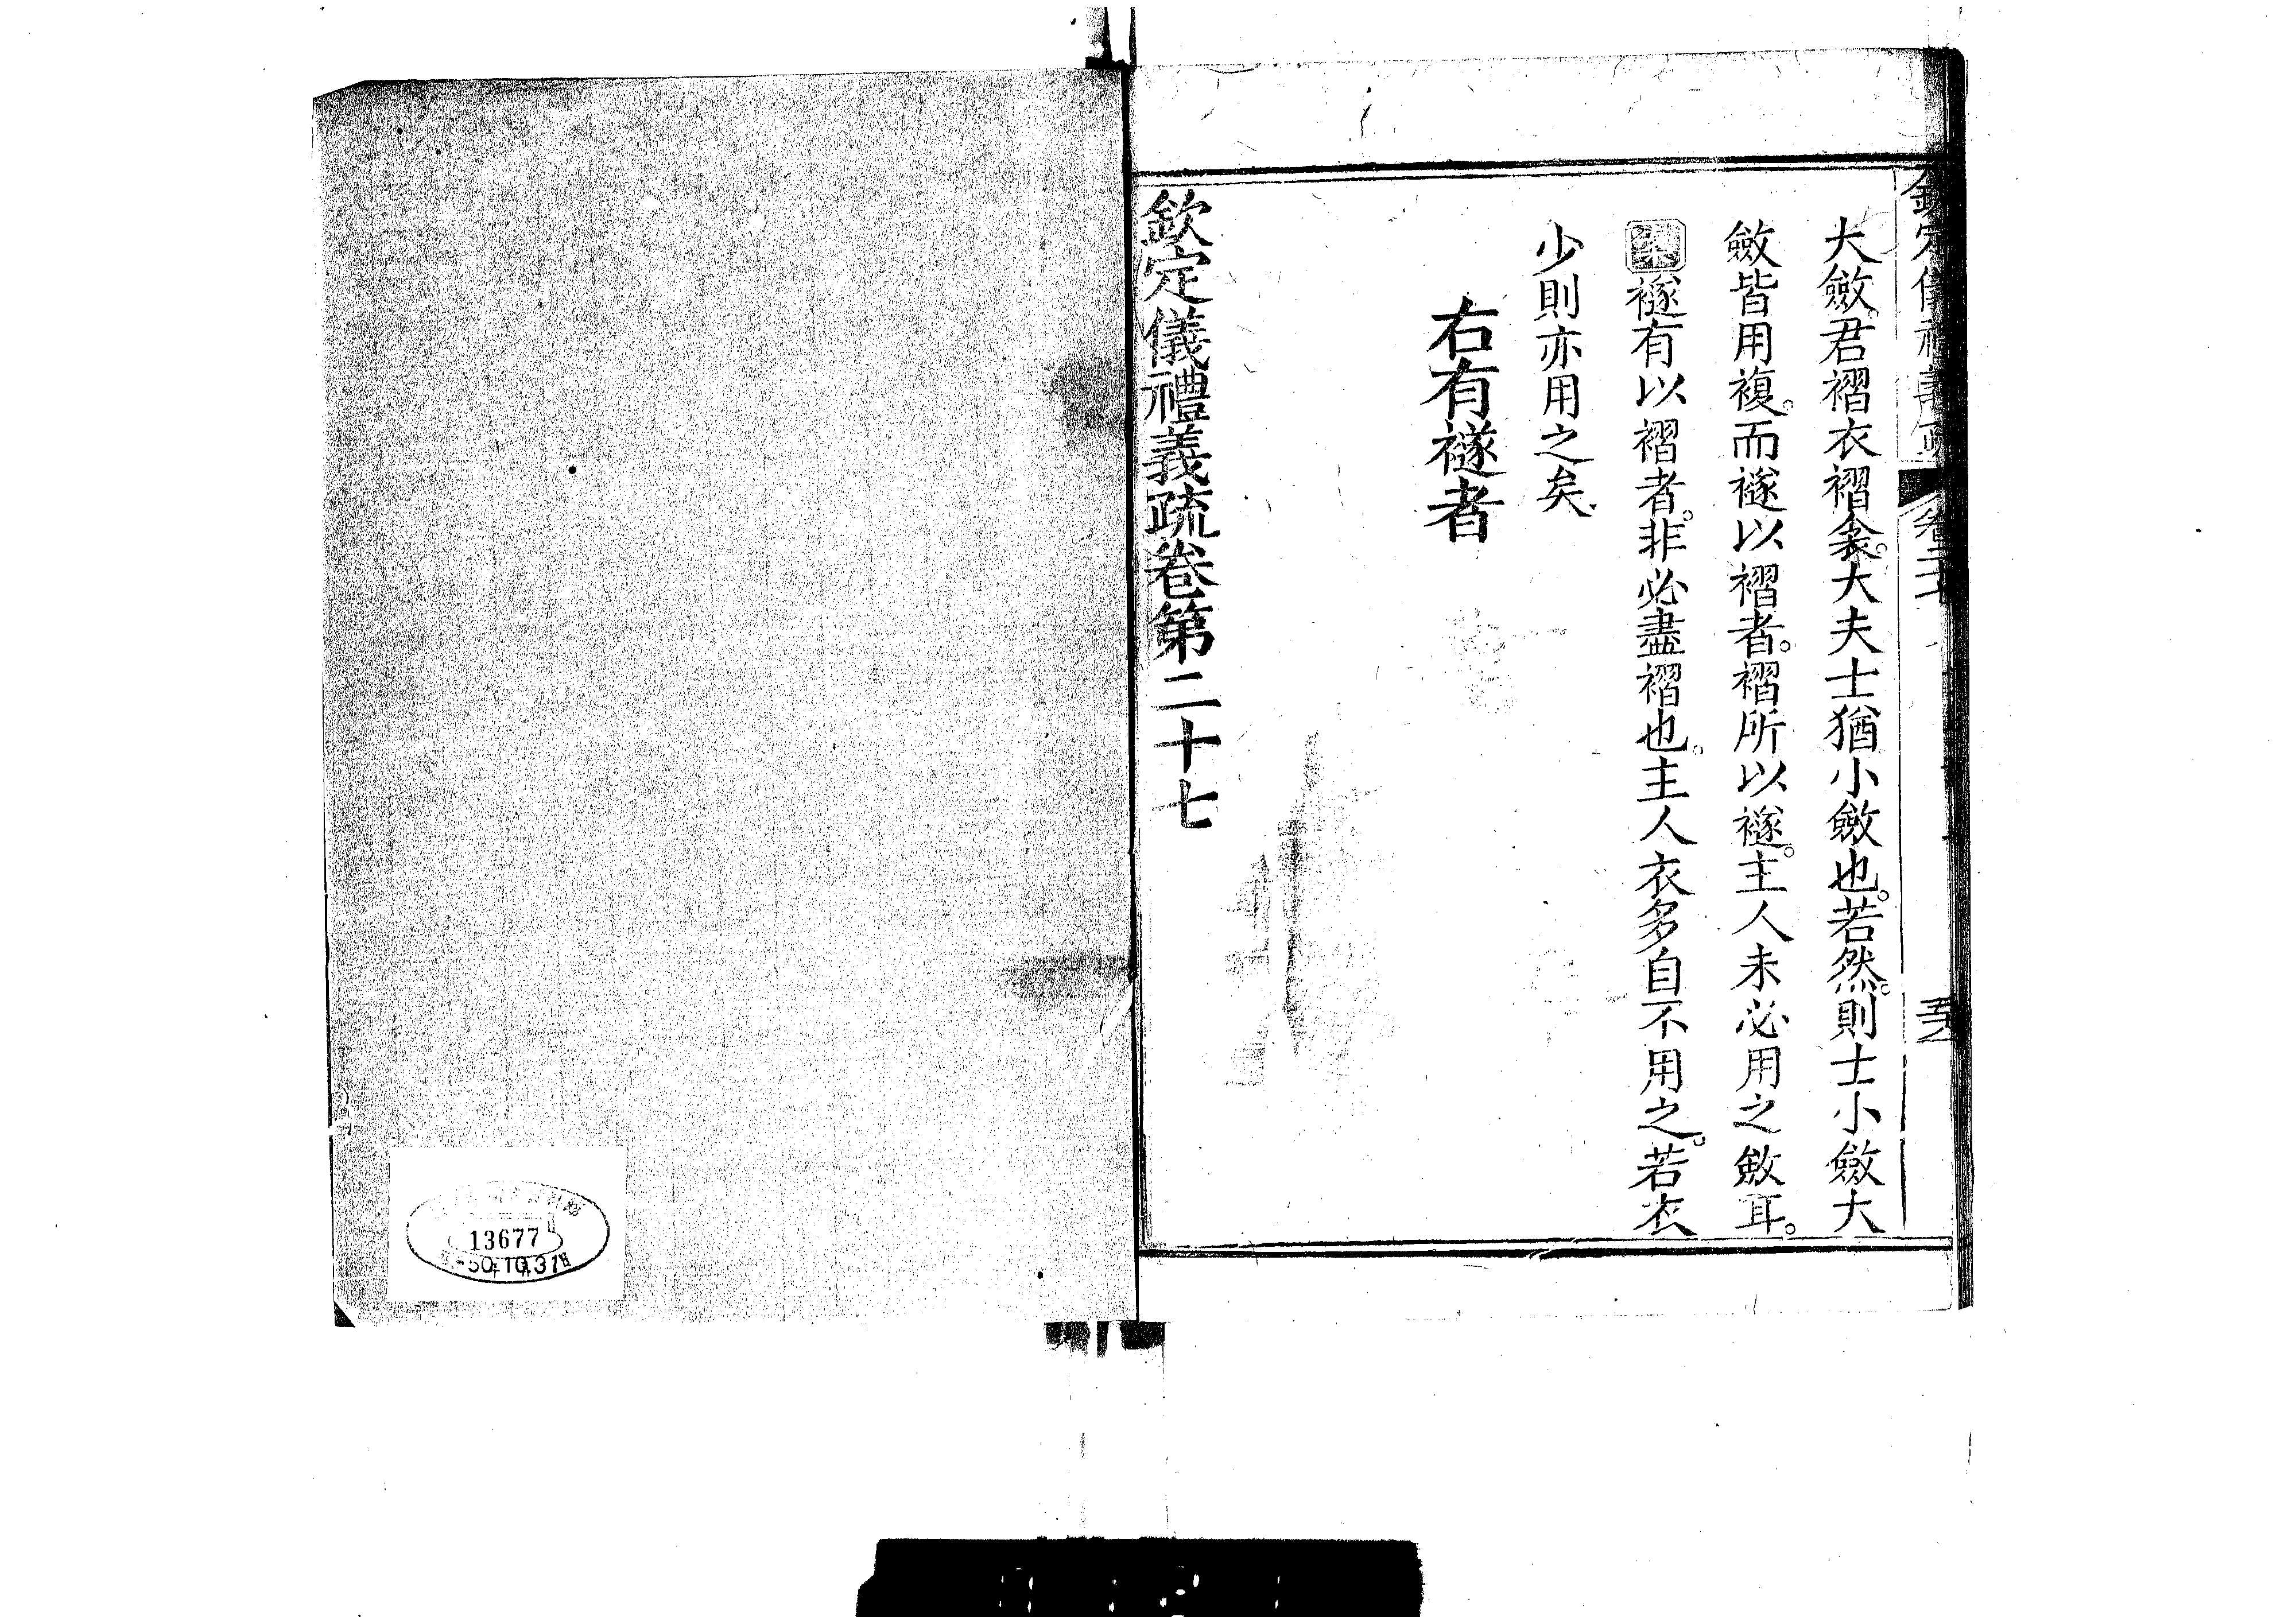 欽定儀禮義疏 卷二十七
大斂。君褶衣褶衾。大夫士猶小斂也。若然。則士小斂大
斂皆用複。而襚以褶者。褶所以襚。主人未必用之斂耳。
案襚有以褶者。非必盡褶也。主人衣多自不用之。若衣
少則亦用之矣
右有襚者
欽定儀禮義疏卷第二十七
13677
50.10.31